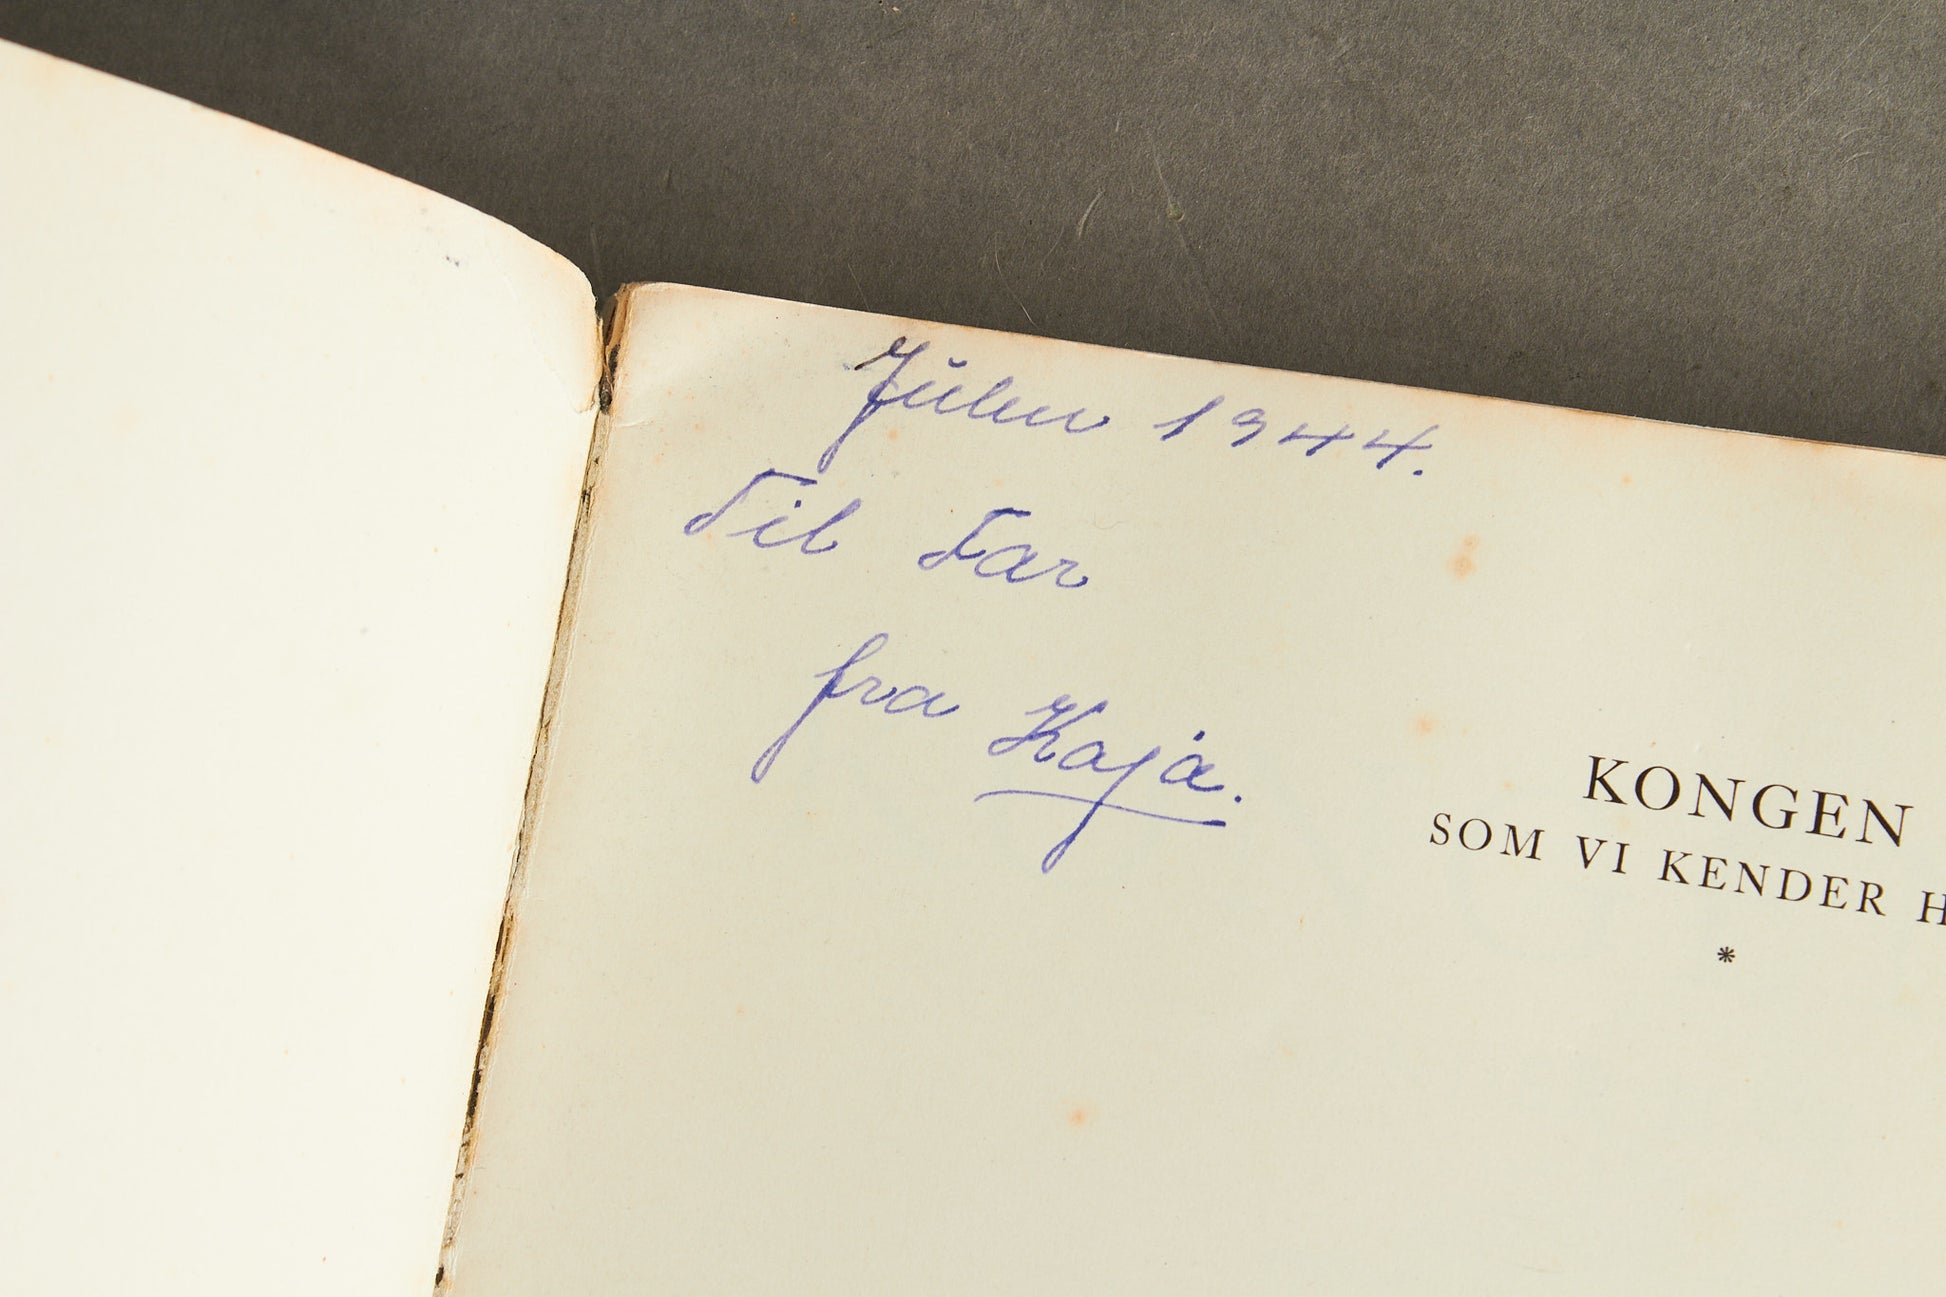 Julen 1944.
Til Far
fra Kaja.
KONGEN
SOM VI KENDER H
*